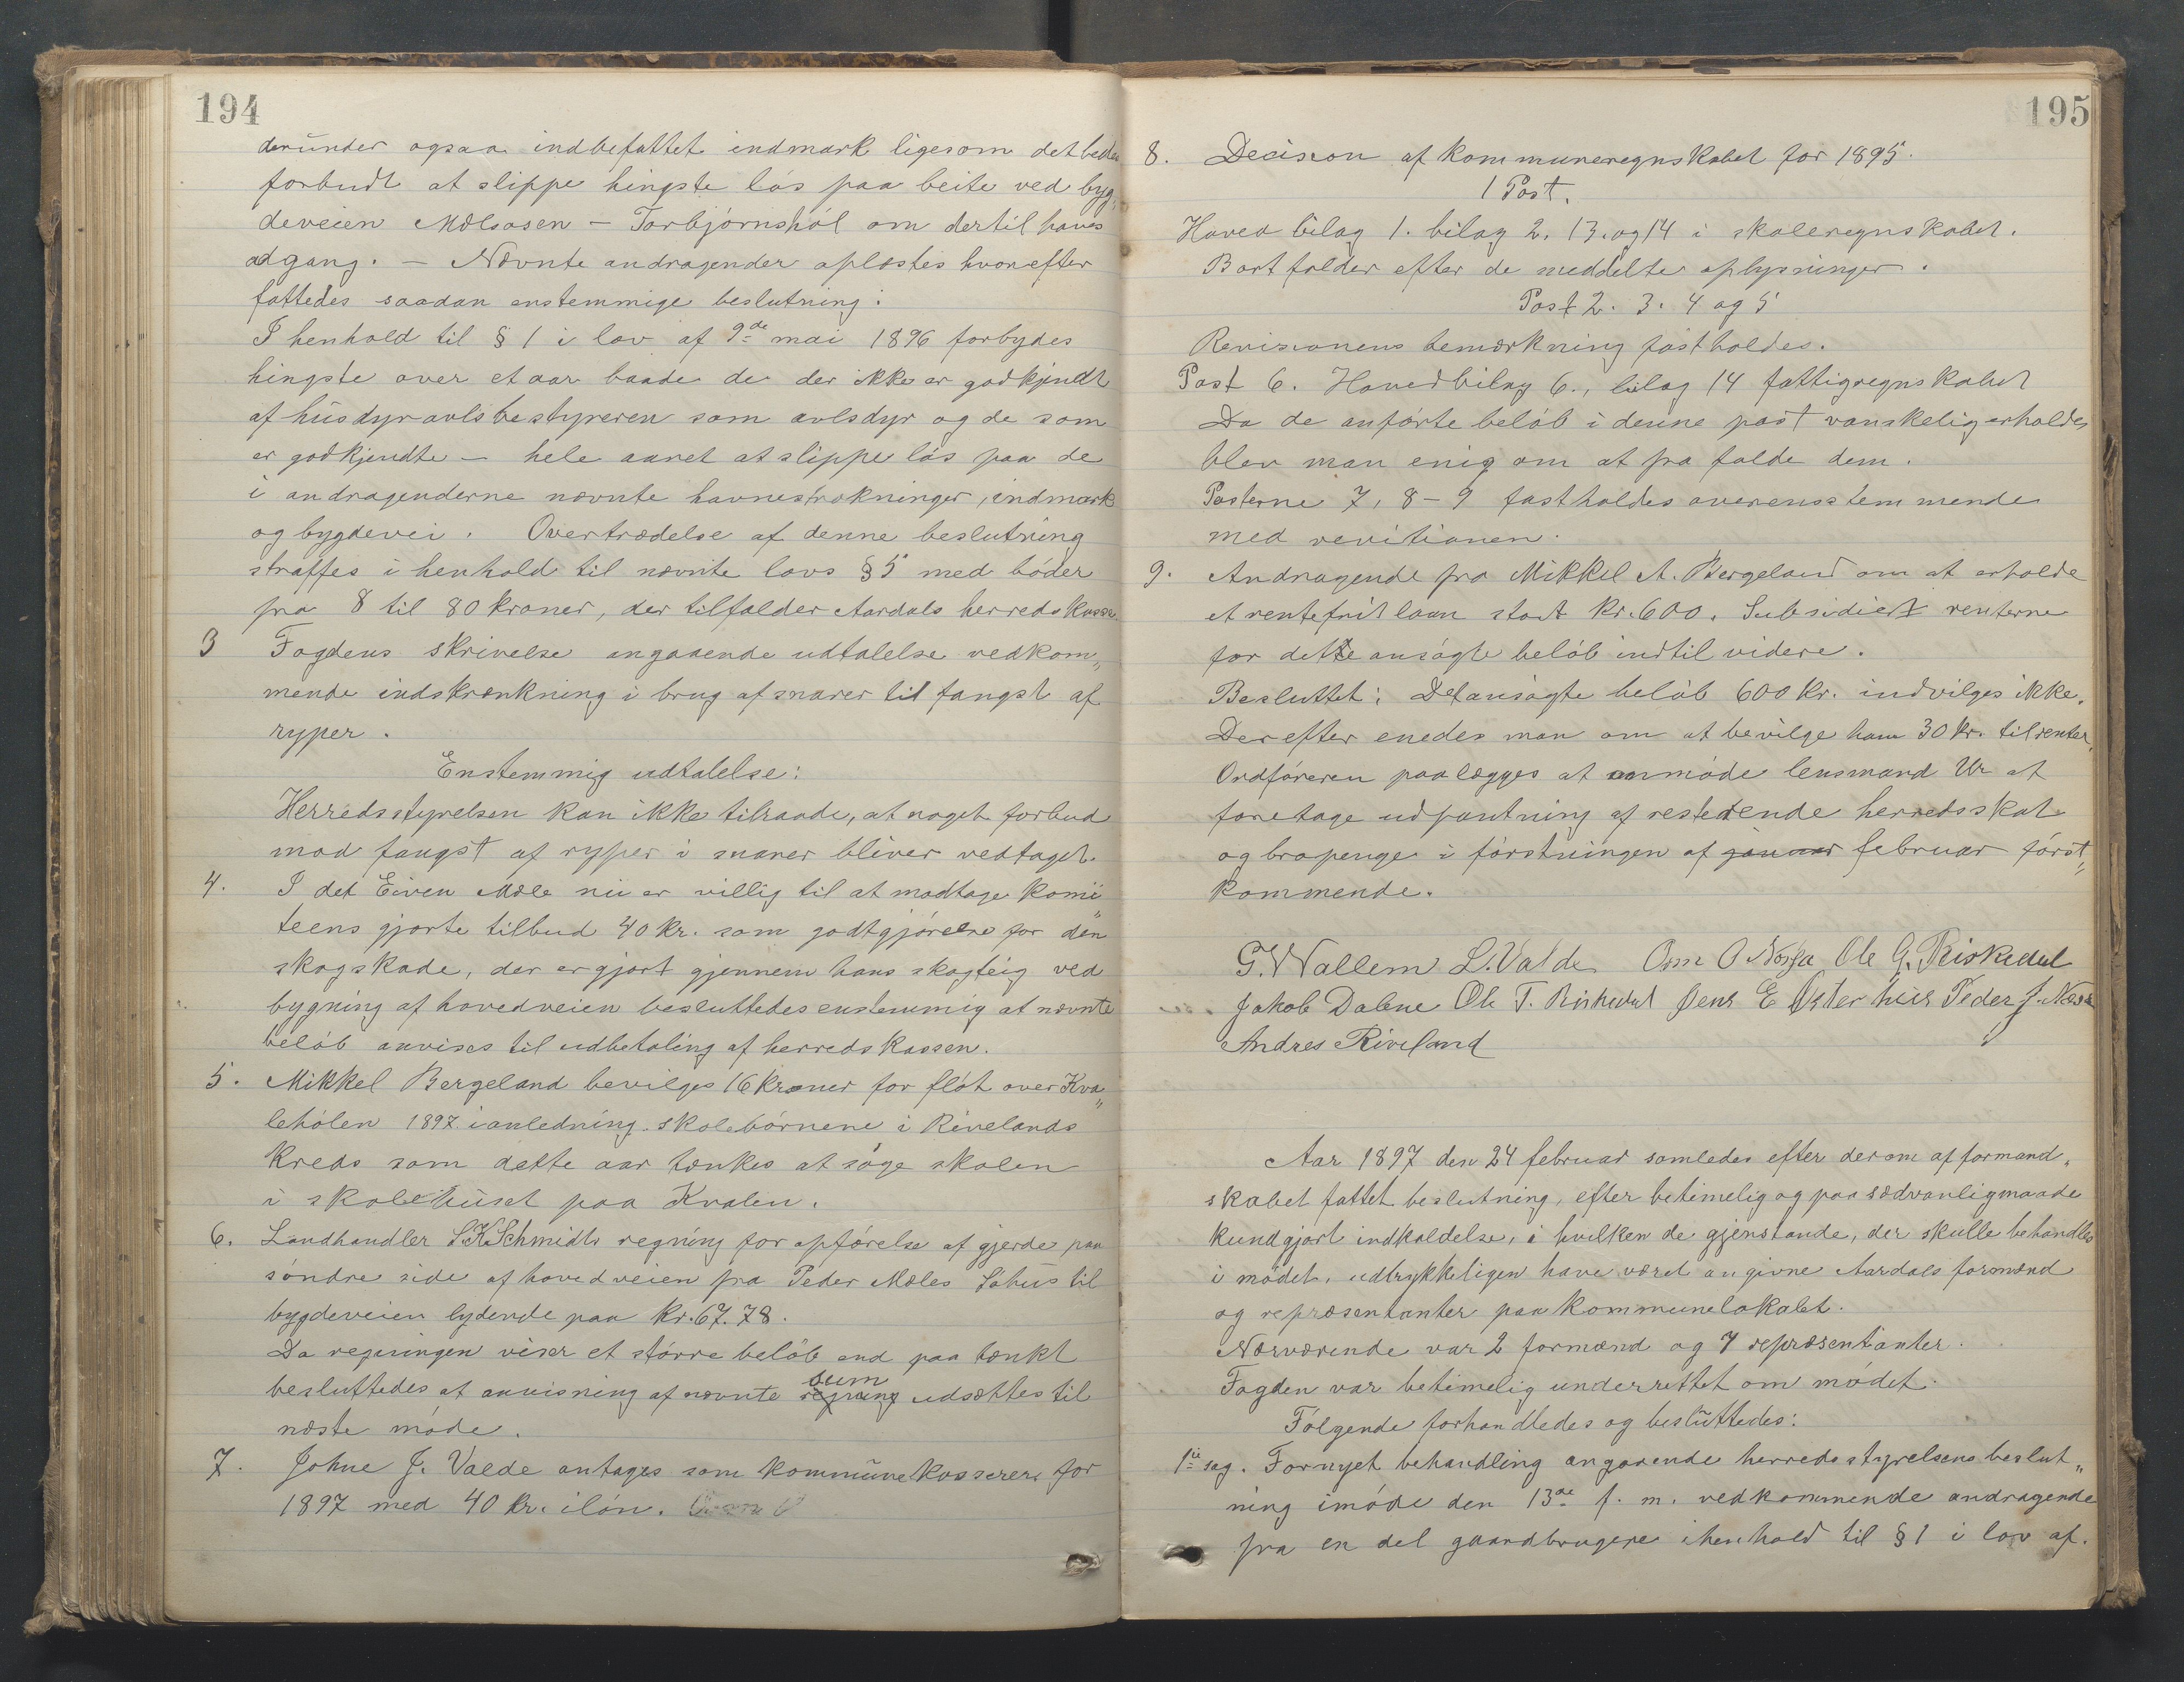 194
derunder ogsaa indbefattet indmark ligesom det bedes
forbudt at slippe hingste løs paa beite ved byg„
deveien Mælsosen – Torbjørnshól om dertil haves
adgang. – Nævnte andragender oplæstes hvorefter
fattedes saadan enstemmige beslutning:
I henhold til § 1 i lov af 9de mai 1896 forbydes
hingste over et aar baade de der ikke er godkjendt
af husdyravlsbestyreren som avlsdyr og de som
er godkjendte – hele aaret at slippe løs paa de
i andragenderne nævnte havnestrækninger, indmark
og bygdevei. Overtrædelse af denne beslutning
straffes i henhold til nævnte lovs § 5 med bóder
fra 8 til 80 kroner, der tilfalder Aardals herredskasse.
3 Fogdens skrivelse angaaende udtalelse vedkom„
mende indskrænkning i brug af snarer til fangst af
ryper.
Enstemmig udtalelse:
Herredsstyrelsen kan ikke tilraade, at noget forbud
mod fangst af ryper i snarer bliver vedtaget.
4. I det Eiven Mæle nu er villig til at modtage komi„
teens gjorte tilbud 40 kr. som godtgjórelse for den
skogskade, der er gjort gjennem hans skogteig ved
bygning af hovedveien besluttedes enstemmig at nævnte
beløb anvises til udbetaling af herredskassen.
5. Mikkel Bergeland bevilges 16 kroner for flót over Kva„
lehólen 1897 i anledning skolebórnene i Rivelands
kreds som dette aar tænkes at sóge skolen
i skolehuset paa Kvalen.
6. Landhandler S.K.Schmidts regning for opfórelse af gjerde paa
sóndre side af hovedveien fra Peder Mæles Sóhus til
bygdeveien lydende paa kr. 67.78.
Da regningen viser et stórre belób end paa tænkt
sum
besluttedes at anvisning af nævnte regning udsættes til
næste móde.
7. Johne J. Valde antages som kommunekasserer for
1897 med 40 kr. i lón.
195
8. Decision af kommuneregnskabet for 1895.
1 Post.
Hoved bilag 1. bilag 2. 13. og 14 i skoleregnskabet.
Bortfalder efter de meddelte oplysninger.
Post 2. 3. 4 og 5
Revisionens bemærkning fastholdes.
Post 6. Hovedbilag 6., bilag 14 fattigregnskabet
Da de anfórte belób i denne post vanskelig erholdes
blev man enig om at fra falde dem.
Posterne 7, 8 – 9 fastholdes overensstemmende
med revitionen.
9. Andragende fra Mikkel A. Bergeland om at erholde
et rentefrit laan stort kr. 600. Subsidiert renterne
for dette ansógte belób indtil videre.
Besluttet: Det ansógte belób 600 kr. indvilges ikke.
Derefter enedes man om at bevilge ham 30 kr. til renter.
Ordfóreren paalægges at anmóde lensmand Ur at
foretage udpantning af resterende herredsskat
og bropenge i fórstningen af januar februar fórst„
kommende.
G. Wallem L. Valde Ole G. Riskedal
Jakob Dalene Ole T. Riskedal Jens E Østerhus Peder J. Næss
Andres Riveland
Aar 1897 den 24 februar samledes efter derom af formand„
skabet fattet beslutning, efter betimelig og paa sædvanlig maade
kundgjort indkaldelse, i hvilken de gjenstande, der skulle behandles
i módet, udtrykkeligen have været angivne Aardals formænd
og repræsentanter paa kommunelokalet.
Nærværende var 2 formænd og 7 repræsentanter.
Fogden var betimelig underrettet om módet.
Fólgende forhandledes og besluttedes:
1ste sag. Fornyet behandling angaaende herredsstyrelsens beslut„
ning i móde den 13de f. m. vedkommende andragende
fra en del gaardbrugere i henhold til § 1 i lov af